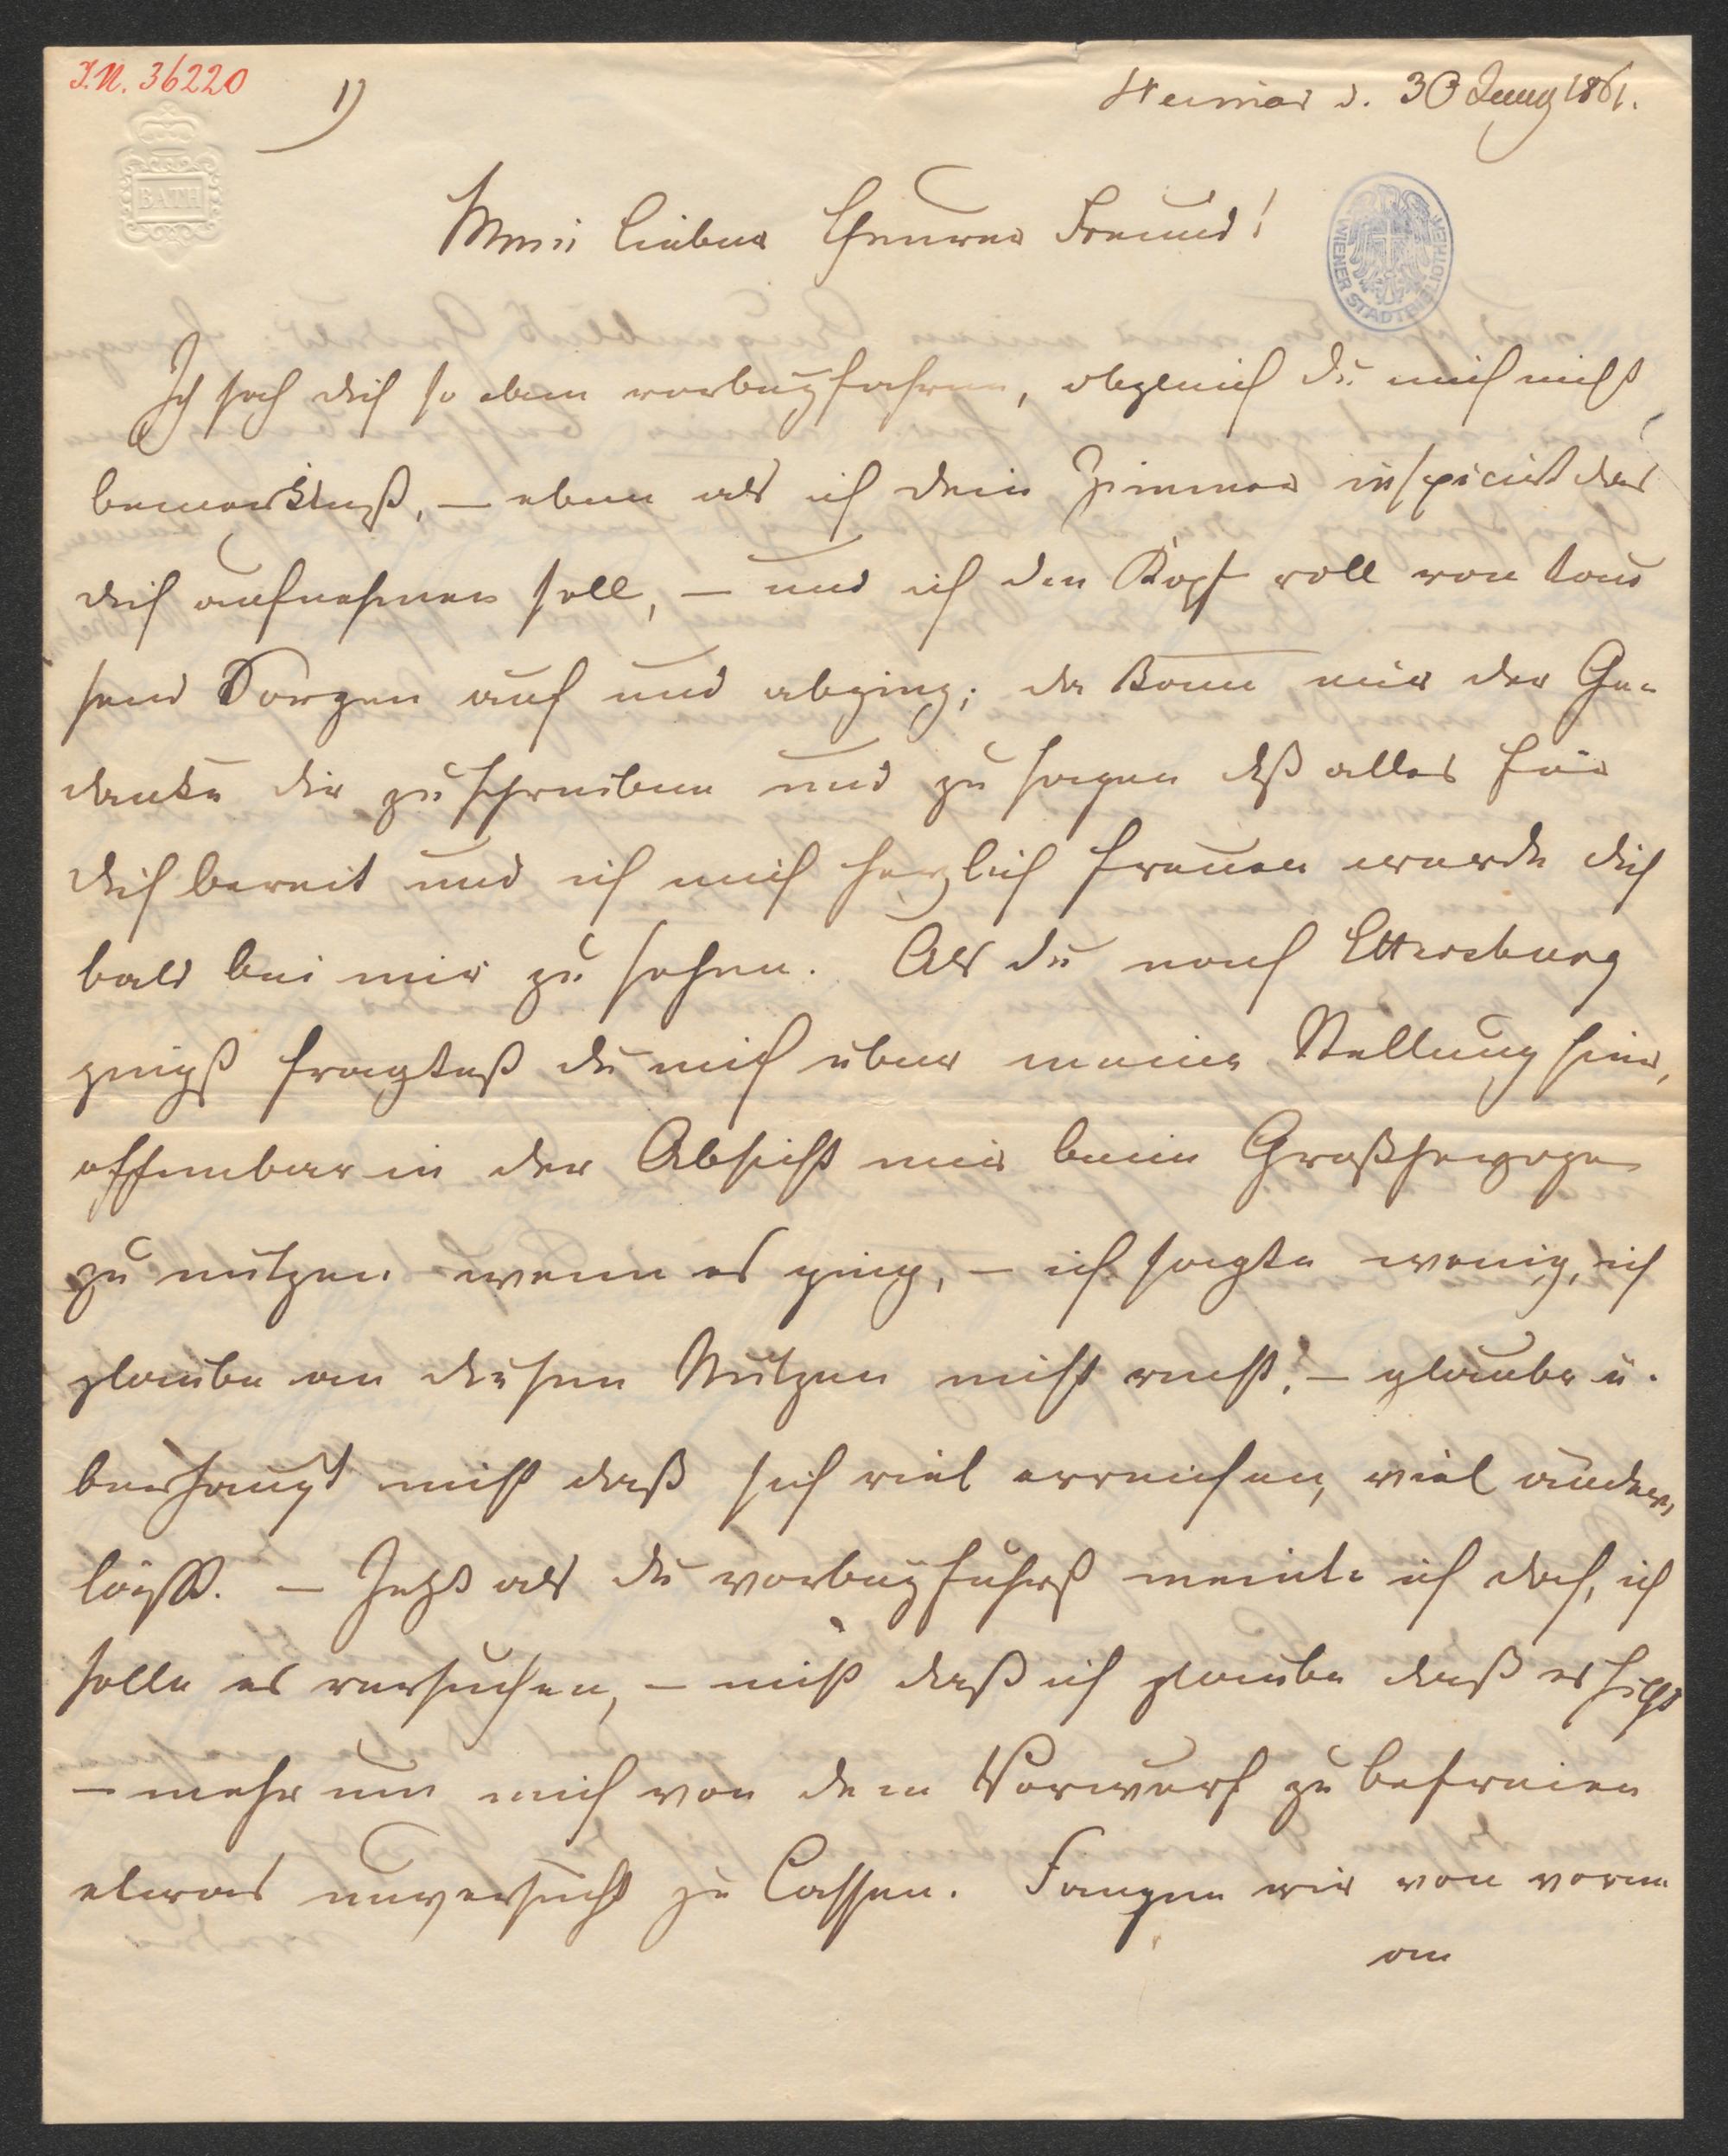 I.N. 36220
1)
Weimar d. 30 Juny 1861.
BATH
Mein lieber theurer Freund!
WIENER STADTBIBLIOTHEK
Ich sah dich so eben vorbeyfahren, obgleich du mich nicht
bemerktest, – eben als ich dein Zimmer inspicirt das
dich aufnehmen soll, – und ich den Kopf voll von tau
send Sorgen auf und abging; da kam mir der Ge-
danke dir zu schreiben und zu sagen daß alles für
dich bereit und ich mich herzlich freuen werde dich
bald bei mir zu sehen. Als du nach Ettersburg
gingst fragtest du mich über meine Stellung hier,
offenbar in der Absicht mir beim Großherzoge
zu nutzen wenn es ging, – ich sagte wenig, ich
glaube an diesen Nutzen nicht recht, – glaube ü-
berhaupt nicht daß sich viel erreichen, viel ändern
läßt. – Jetzt als du vorbeyfuhrst meinte ich doch, ich
solle es versuchen, – nicht daß ich glaube daß es hilft
– mehr um mich von dem Vorwurf zu befreien
etwas unversucht zu lassen. Fangen wir von vorne
an